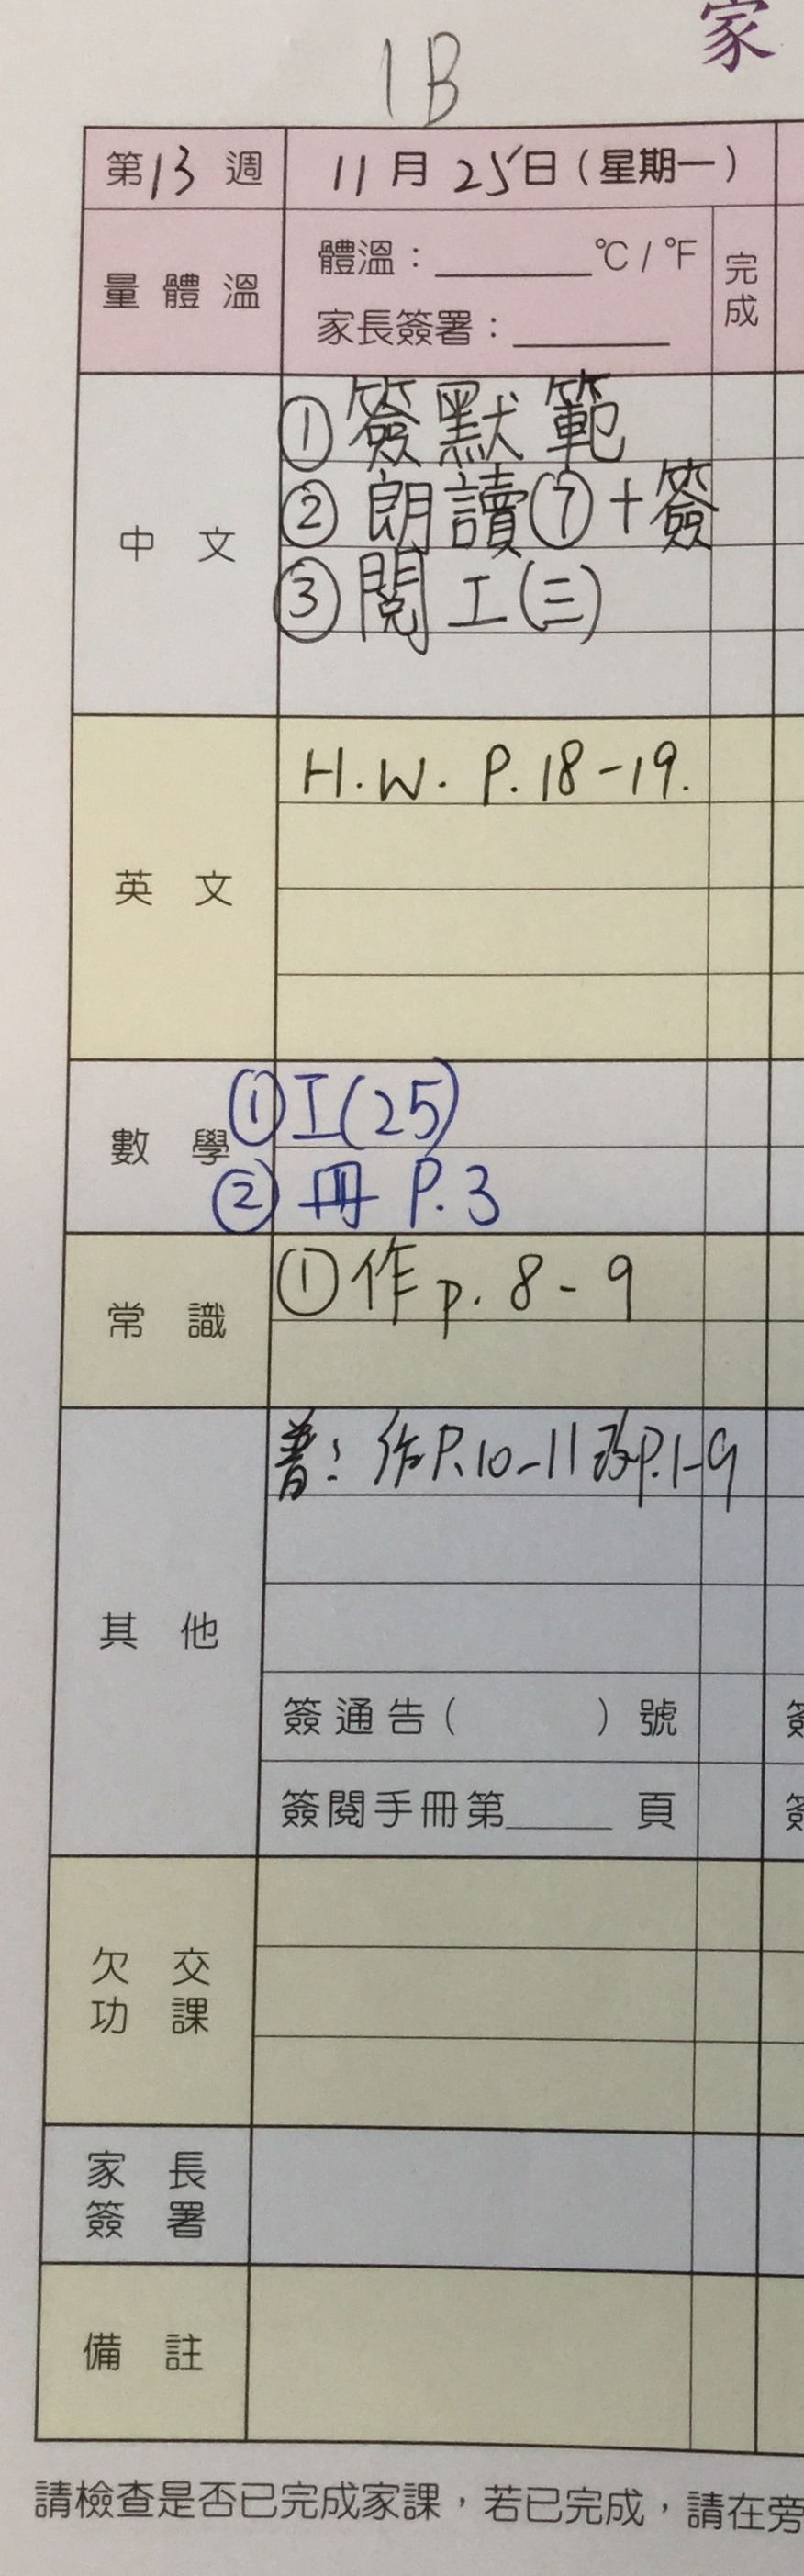 家
1B
第13週 11月25日(星期一)
量體溫 體溫：______℃/℉ 完成
家長簽署：______
中文 ①簽默範
②朗讀⑦+簽
③閱工(三)
英文 H.W. P.18-19.
數學 ①工(25)
②冊 P.3
常識 ①作p.8-9
其他 普：作P.10-11 改P.1-9
簽通告( )號 簽
簽閱手冊第____頁 簽
欠交功課
家長簽署
備註
請檢查是否已完成家課，若已完成，請在旁